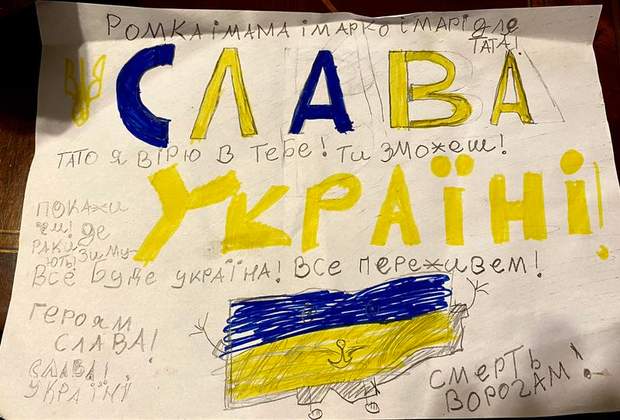 РОМКА І МАМА І МАРКО І МАРІ ДЛЕ
ТАТА!
СЛАВА
ТАТО Я ВІРЮ В ТЕБЕ! ТИ ЗМОЖЕШ!
УКРАЇНІ!
ПОКАЖИ
ЇМ! ДЕ
РАКИ
ЗИМУ-
ЮТЬ!
ВСЕ БУДЕ УКРАЇНА! ВСЕ ПЕРЕЖИВЕМ!
ГЕРОЯМ
СЛАВА!
СЛАВА!
УКРАЇНІ
СМЕРТЬ
ВОРОГАМ!